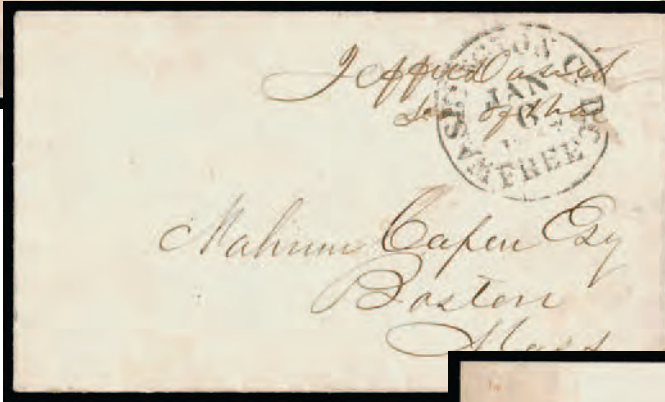 Jeffn Davis
Sec of War
WASHINGTON C. D.C.
JAN
6
FREE
Nahum Capen Esq
Boston
Mass